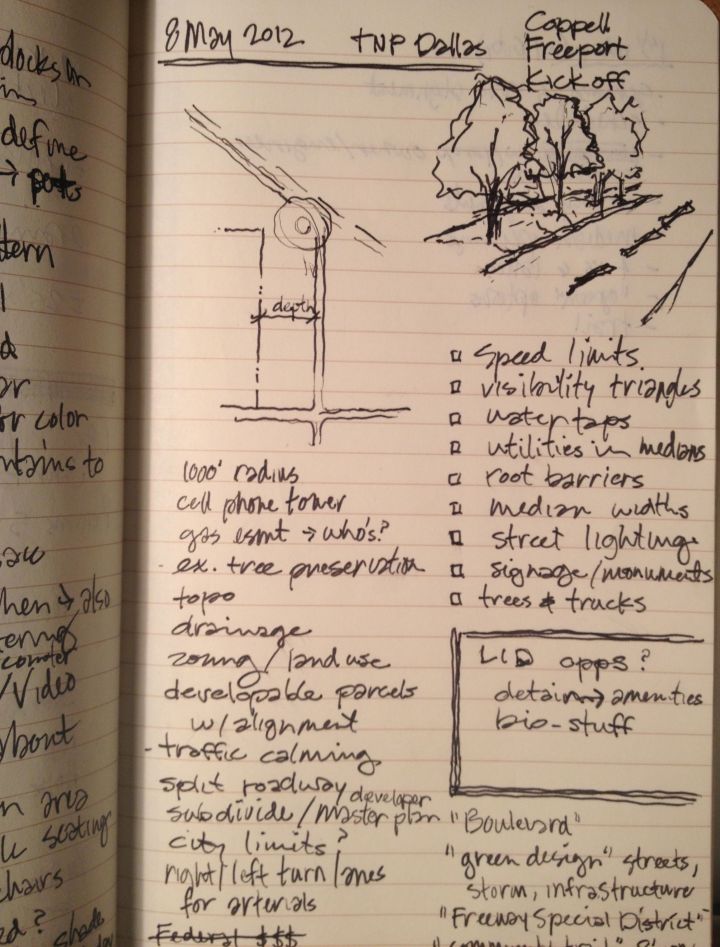 8 May 2012
TNP Dallas
Coppell
Freeport
Kick off
depth
1000' radius
cell phone tower
gas esmt → who's?
- ex. tree preservation
topo
drainage
zoning / land use
developable parcels
w/ alignment
- traffic calming
split roadway
developer
subdivide / master plan
city limits?
right / left turn lanes
for arterials
Federal $$$
□ speed limits
□ visibility triangles
□ water taps
□ utilities in medians
□ root barriers
□ median widths
□ street lighting
□ signage / monuments
□ trees & trucks
LID opps?
detain → amenities
bio-stuff
"Boulevard"
"green design" streets,
storm, infrastructure
"Freeway Special District"
define
→
or color
also
/Video
about
area
seating
chairs
shade